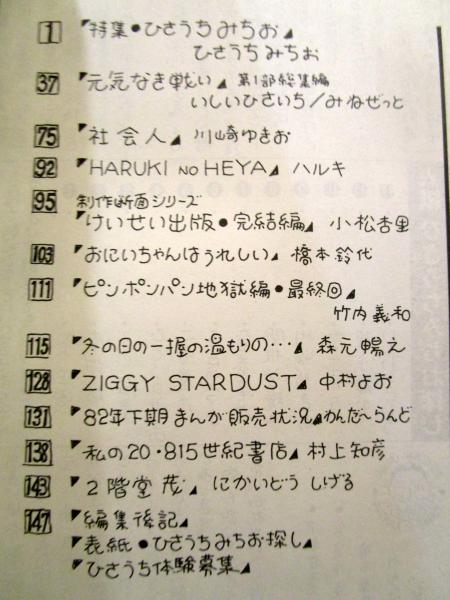 1 「特集●ひさうちみちお」
ひさうちみちお
37 「元気なき戦い」 第1部総集編
いしいひさいち/みねぜっと
75 「社会人」 川崎ゆきお
92 「HARUKI NO HEYA」 ハルキ
95 制作断面シリーズ
「けいせい出版●完結編」 小松杏里
103 「おにいちゃんはうれしい」 橋本鈴代
111 「ピンポンパン地獄編●最終回」
竹内義和
115 「冬の日の一握の温もりの…」 森元暢之
128 「ZIGGY STARDUST」 中村よお
131 「82年下期まんが販売状況」わんだ〜らんど
138 「私の20・815世紀書店」 村上知彦
143 「2階堂茂」 にかいどう しげる
147 「編集後記」
「表紙●ひさうちみちお探し」
「ひさうち体験募集」